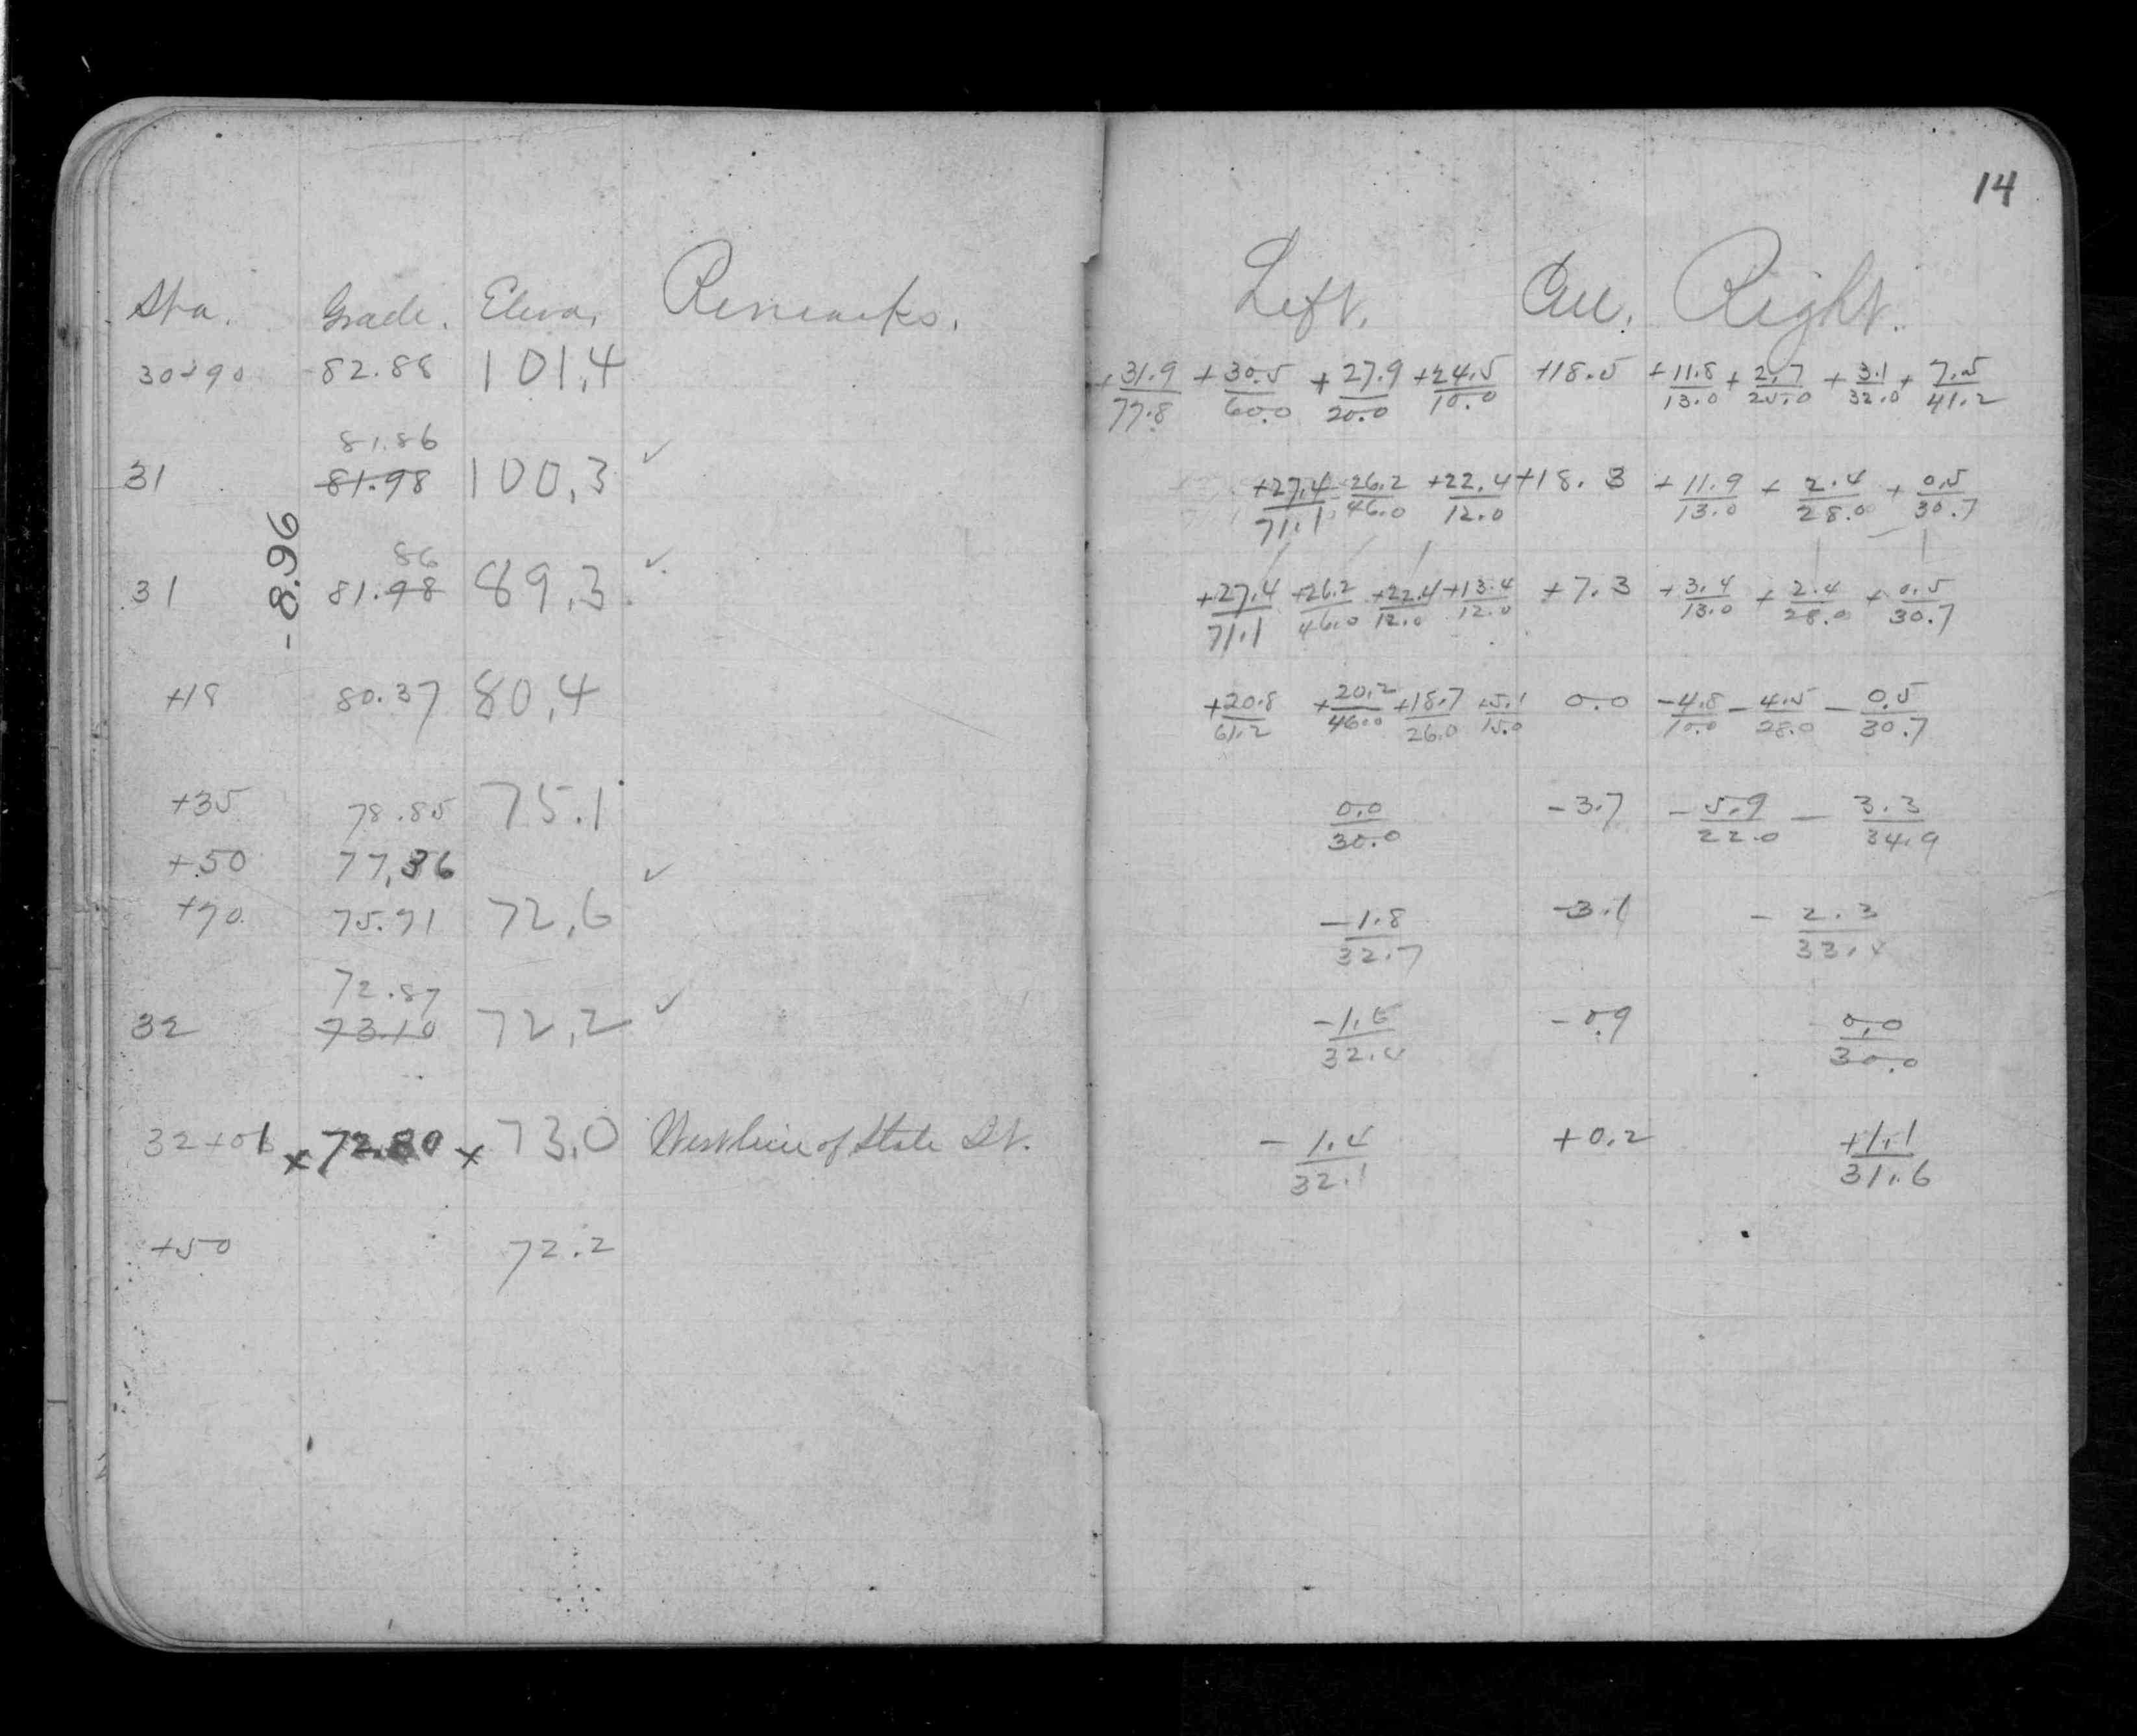 14
Sta. Grade. Eleva. Remarks. Left. Cen. Right.
30+90 82.88 101.4 +31.9/77.8 +30.5/60.0 +27.9/20.0 +24.5/10.0 +18.5 +11.8/13.0 +2.7/25.0 +3.1/32.0 +7.5/41.2
81.86
31 81.98 100.3 ✓ +27.4/71.1 26.2/46.0 +22.4/12.0 +18.3 +11.9/13.0 +2.4/28.0 +0.5/30.7
-8.96
86
31 81.98 89.3 ✓ +27.4/71.1 +26.2/46.0 +22.4/12.0 +13.4/12.0 +7.3 +3.4/13.0 +2.4/28.0 +0.5/30.7
+18 80.37 80.4 +20.8/61.2 +20.2/46.0 +18.7/26.0 +5.1/15.0 0.0 -4.8/10.0 -4.5/28.0 -0.5/30.7
+35 78.85 75.1 0.0/30.0 -3.7 -5.9/22.0 -3.3/34.9
+50 77.36
+70 75.71 72.6 ✓ -1.8/32.7 -3.1 -2.3/33.4
72.87
32 73.10 72.2 ✓ -1.6/32.4 -0.9 0.0/30.0
x 72.80 x 73.0 West line of State St. -1.4/32.1 +0.2 +1.1/31.6
+50 72.2